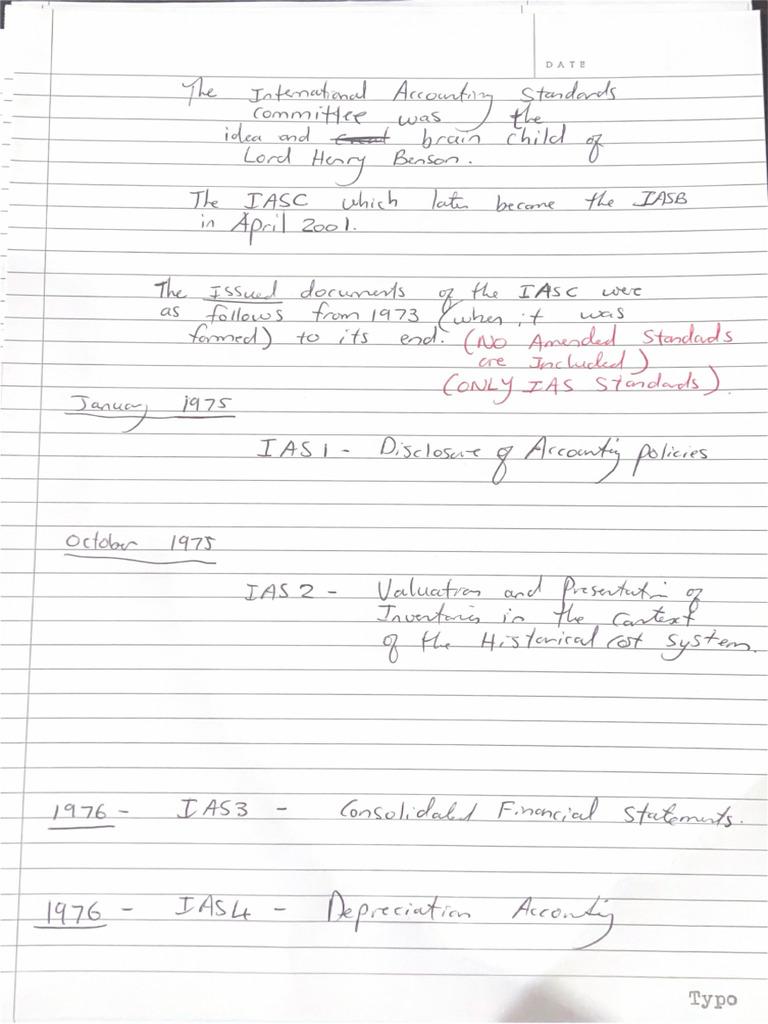 DATE
The International Accounting Standards
committee was the
idea and brain child of
Lord Henry Benson.
The IASC which later became the IASB
in April 2001.
The Issued documents of the IASC were
as follows from 1973 (when it was
formed) to its end. (No Amended Standards
are Included)
(ONLY IAS Standards).
January 1975
IAS 1 - Disclosure of Accounting policies
October 1975
IAS 2 - Valuation and Presentation of
Inventories in the Context
of the Historical cost system.
1976 - IAS3 - Consolidated Financial Statements.
1976 - IAS4 - Depreciation Accounting
Typo